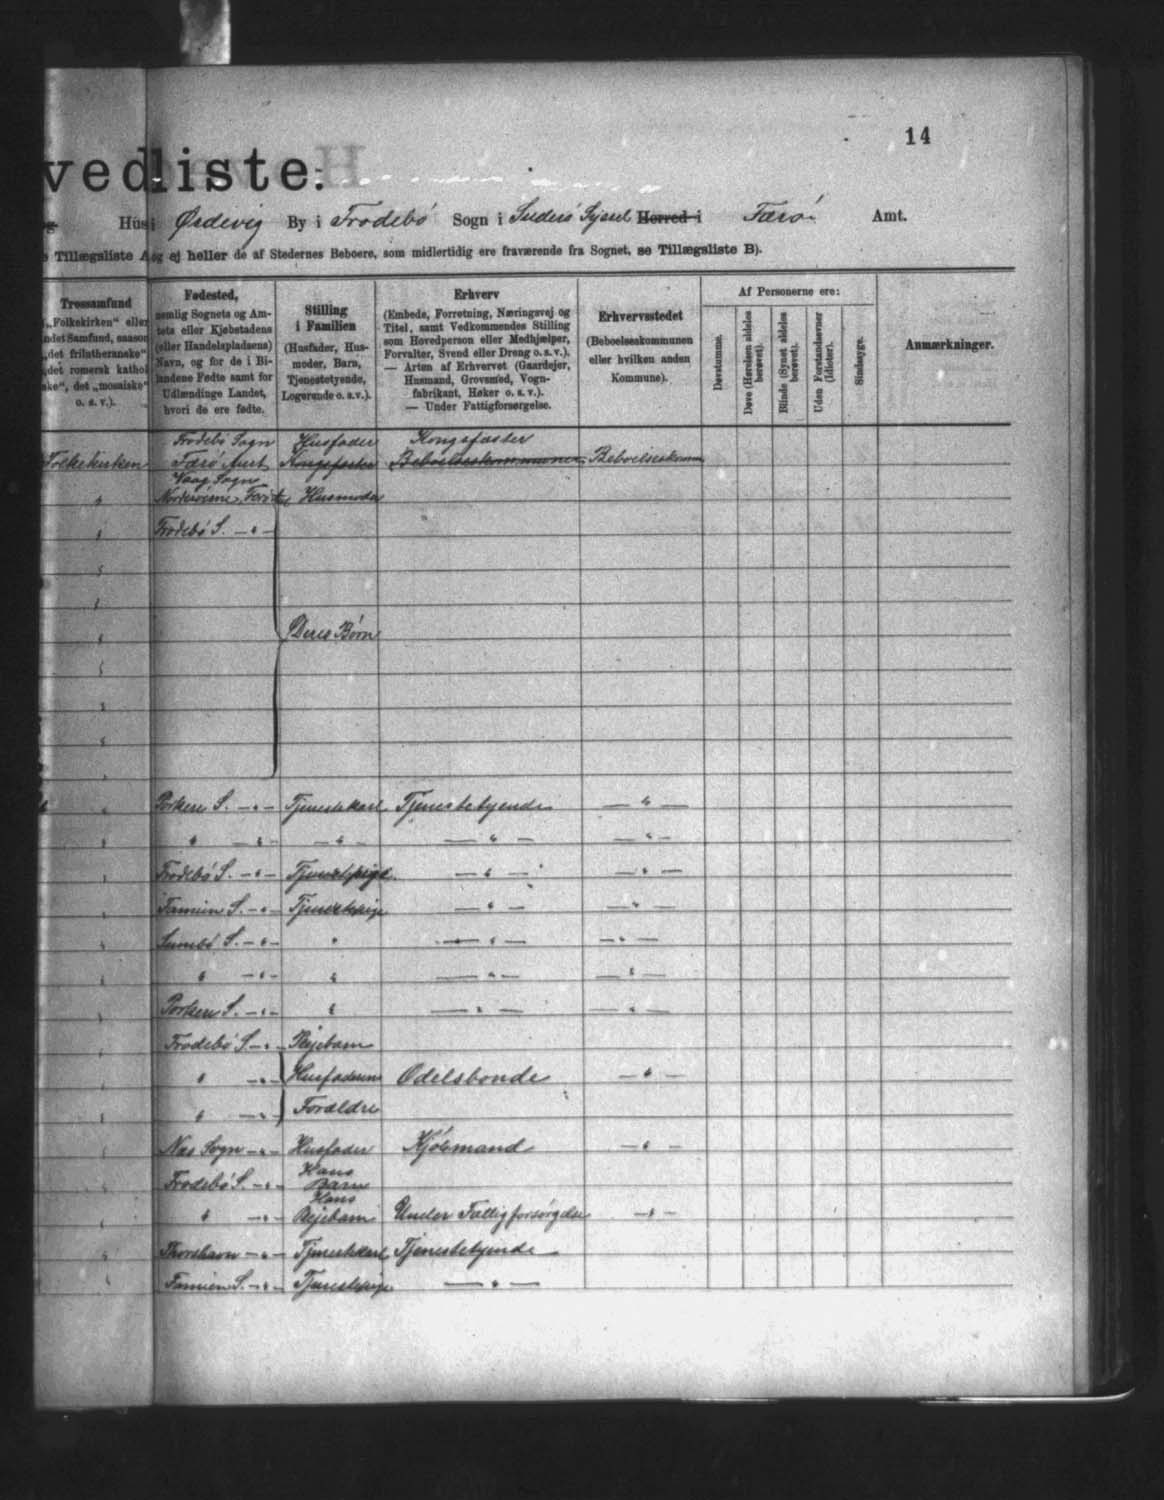 14
vedliste.
Hus i Ørdevig By i Frodebø Sogn i Suderø Sysel Herred i Færø Amt.
Tillægsliste A og ej heller de af Stedernes Beboere, som midlertidig ere fraværende fra Sognet, se Tillægsliste B).
Trossamfund
„Folkekirken“ eller
ndet Samfund, saasom
„det frilutheranske“
„det romersk kathol
ske“, det „mosaiske“
o. s. v.).
Fødested,
nemlig Sognets og Am-
tets eller Kjøbstadens
(eller Handelspladsens)
Navn, og for de i Bi-
landene Fødte samt for
Udlændinge Landet,
hvori de ere fødte.
Stilling
i Familien
(Husfader, Hus-
moder, Barn,
Tjenestetyende,
Logerende o. s. v.).
Erhverv
(Embede, Forretning, Næringsvej og
Titel, samt Vedkommendes Stilling
som Hovedperson eller Medhjælper,
Forvalter, Svend eller Dreng o. s. v.).
— Arten af Erhvervet (Gaardejer,
Husmand, Grovsmed, Vogn-
fabrikant, Høker o. s. v.).
— Under Fattigforsørgelse.
Erhvervsstedet
(Beboelseskommunen
eller hvilken anden
Kommune).
Af Personerne ere:
Døvstumme.
Døve (Hørelsen aldeles
berøvet).
Blinde (Synet aldeles
berøvet).
Uden Forstandsevner
(Idioter).
Sindssyge.
Anmærkninger.
Frodebø Sogn Husfader Kongsfæster
Folkekirken Færø Amt Kongsfæster Beboelseskommunen Beboelseskom
Vaag Sogn
" Husmoder
" Frodebø S. — " —
"
"
" Deres Børn
"
"
"
"
" Porkere S. — " — Tjenestekarl Tjenestetyende — " —
" " — " — — " — — " — — " —
" Frodebø S. — " — Tjenestepige — " — — " —
" Famien S. — " — Tjenestepige — " — — " —
" Sumbø S. — " — " — " — — " —
" " — " — " — " — — " —
" Porkere S. — " — " — " — — " —
" Frodebø S. — " — Plejebarn
" " — " — Husfaderens Odelsbonde — " —
" " — " — Forældre
" Næs Sogn — " — Husfader Kjøbmand — " —
" Frodebø S. — " — Hans
Barn
" " — " — Hans
Plejebarn Under Fattigforsørgelse — " —
" Thorshavn — " — Tjenestekarl Tjenestetyende
" Famien S. — " — Tjenestepige — " —